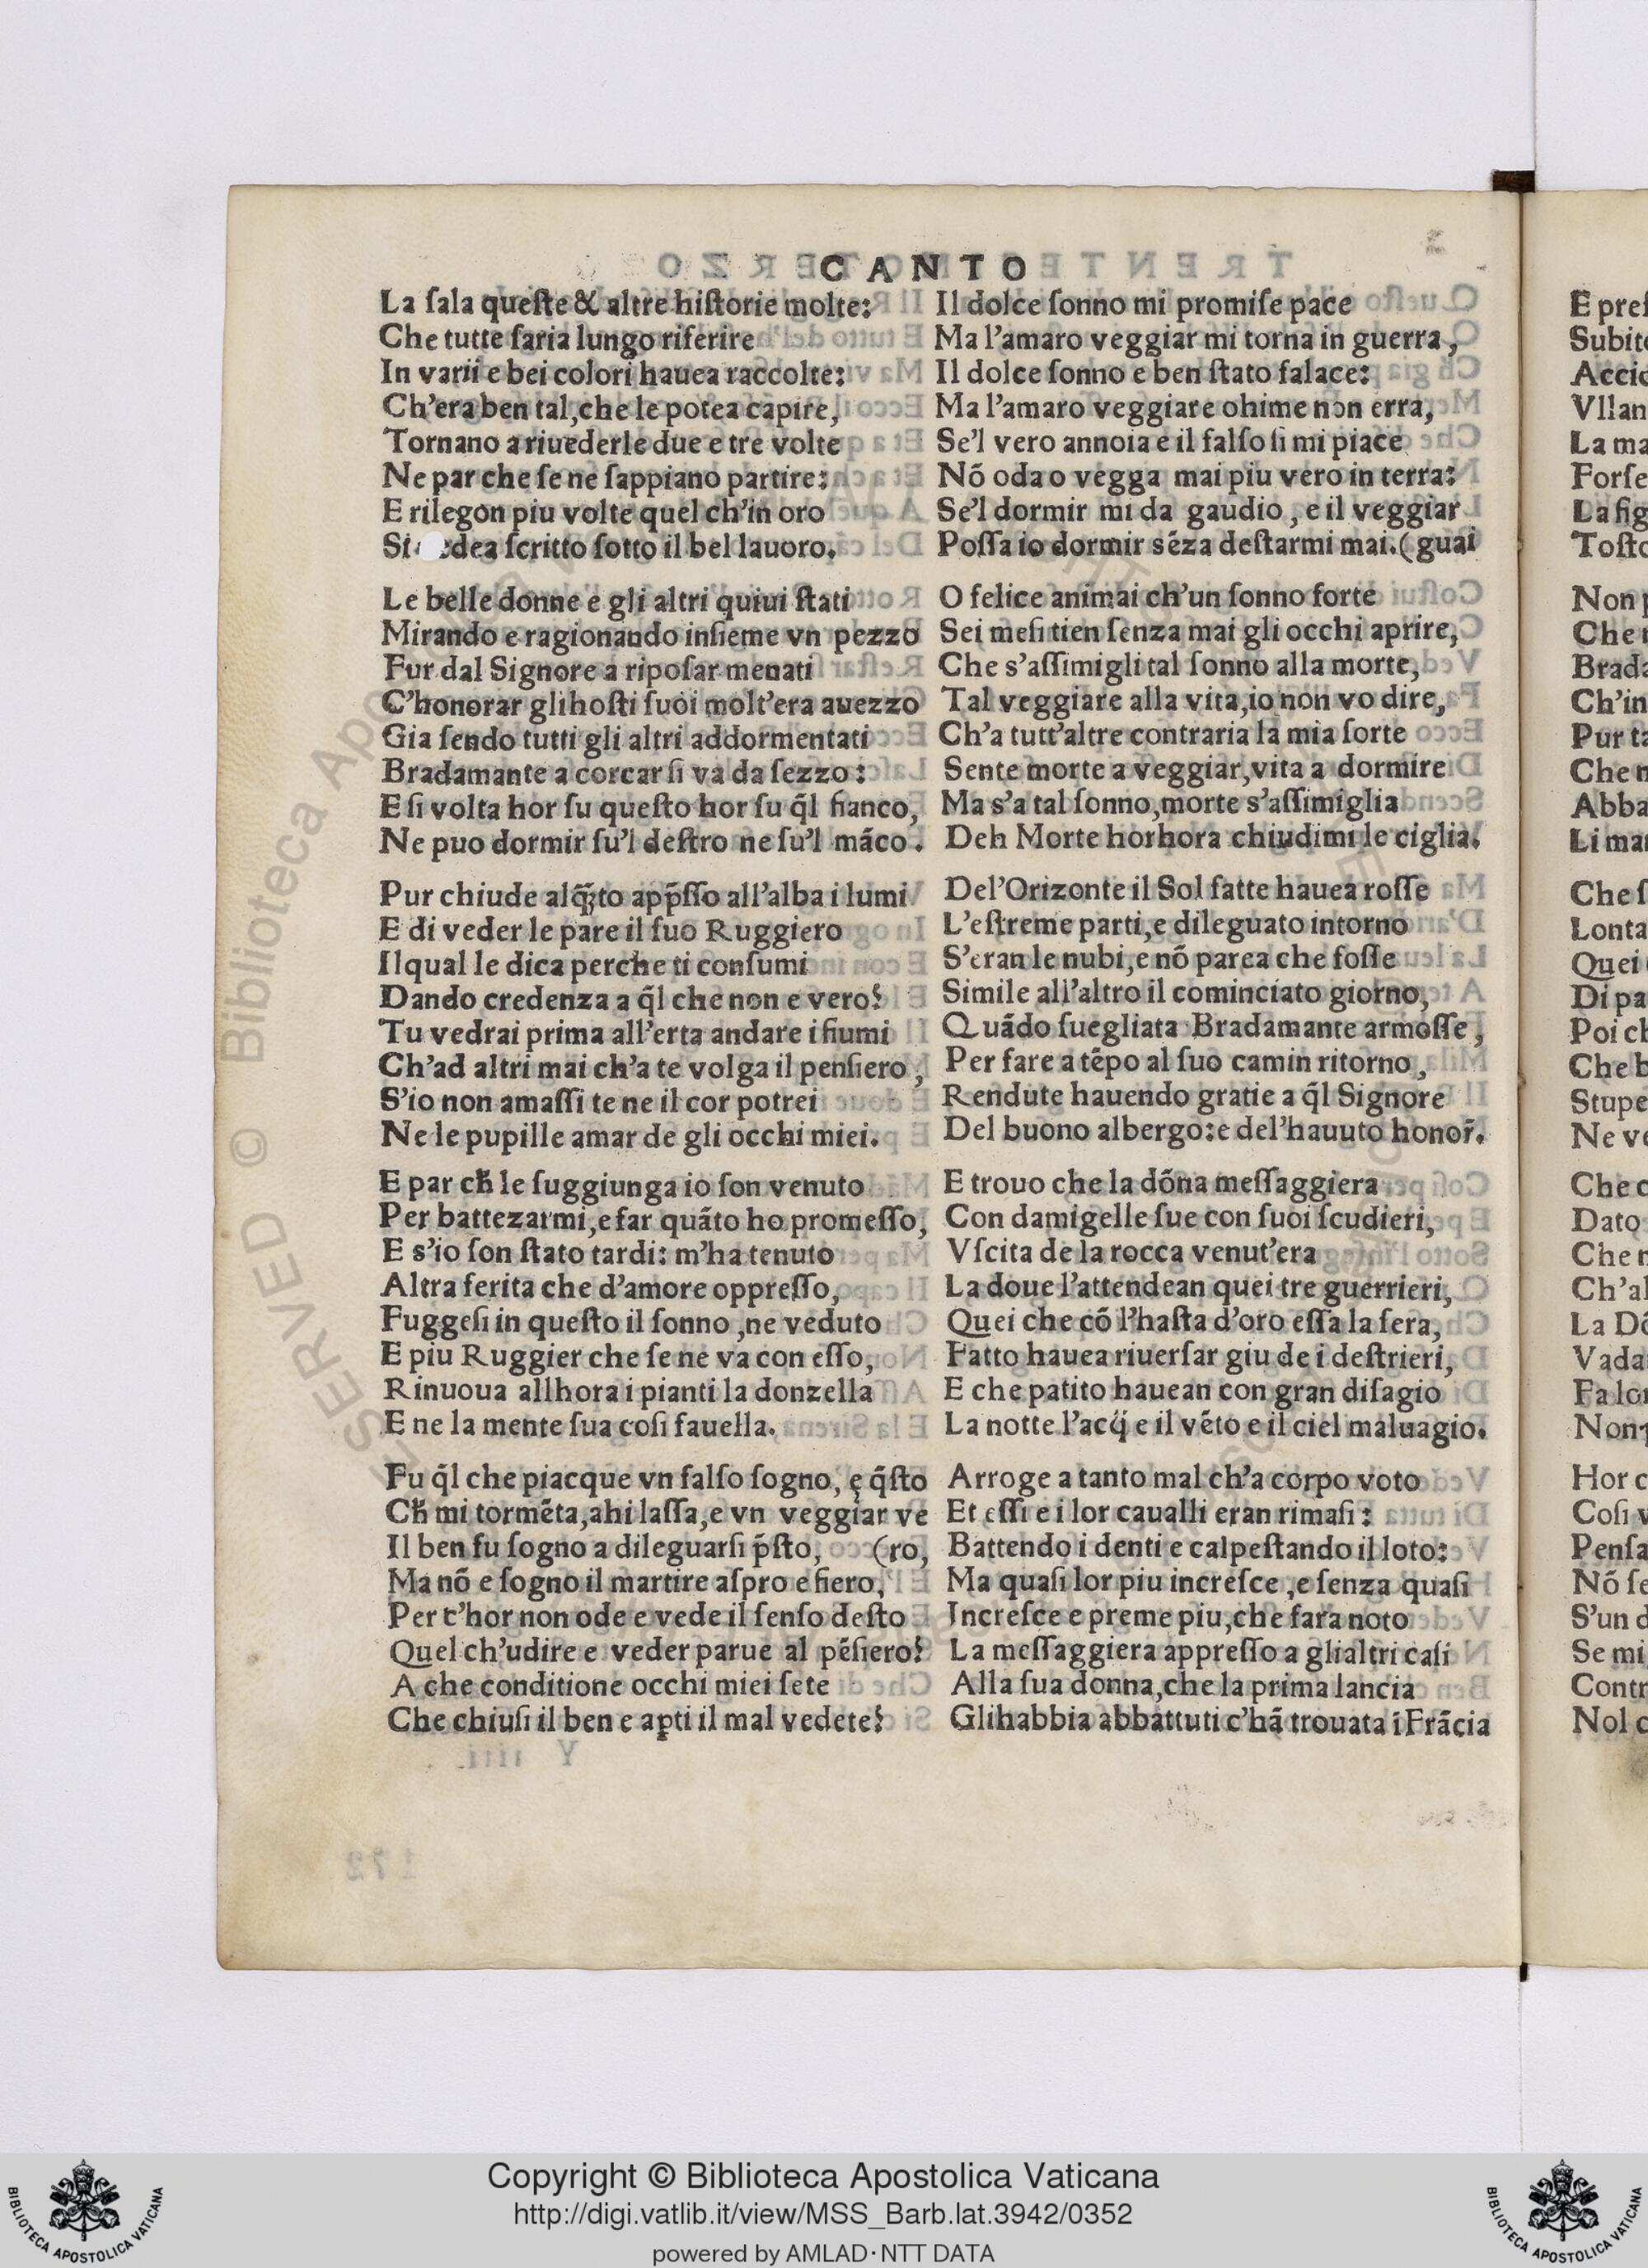 CANTO
La ſala queſte & altre hiſtorie molte:
Che tutte ſaria lungo riferire
In varii e bei colori hauea raccolte:
Ch'era ben tal,che le potea capire,
Tornano a riuederle due e tre volte
Ne par che ſe ne ſappiano partire:
E rilegon piu volte quel ch'in oro
Si dea ſcritto ſotto il bel lauoro.
Le belle donne e gli altri quiui ſtati
Mirando e ragionando inſieme vn pezzo
Fur dal Signore a ripoſar menati
C'honorar glihoſti ſuoi molt'era auezzo
Gia ſendo tutti gli altri addormentati
Bradamante a corcarſi va da ſezzo:
E ſi volta hor ſu queſto hor ſu q̃l fianco,
Ne puo dormir ſu'l deſtro ne ſu'l mãco.
Pur chiude alq̃to app̃ſſo all'alba i lumi
E di veder le pare il ſuo Ruggiero
Ilqual le dica perche ti conſumi
Dando credenza a q̃l che non e vero?
Tu vedrai prima all'erta andare i fiumi
Ch'ad altri mai ch'a te volga il penſiero,
S'io non amaſſi te ne il cor potrei
Ne le pupille amar de gli occhi miei.
E par cħ le ſuggiunga io ſon venuto
Per battezarmi,e far quãto ho promeſſo,
E s'io ſon ſtato tardi: m'ha tenuto
Altra ferita che d'amore oppreſſo,
Fuggeſi in queſto il ſonno ,ne veduto
E piu Ruggier che ſe ne va con eſſo,
Rinuoua allhora i pianti la donzella
E ne la mente ſua coſi fauella.
Fu q̃l che piacque vn falſo ſogno, ę q̃ſto
Cħ mi tormẽta,ahi laſſa,e vn veggiar ve
Il ben fu ſogno a dileguarſi p̃ſto, (ro,
Ma nõ e ſogno il martire aſpro e fiero,
Per c'hor non ode e vede il ſenſo deſto
Quel ch'udire e veder parue al pẽſiero?
A che conditione occhi miei ſete
Che chiuſi il ben e aꝑti il mal vedete?
Il dolce ſonno mi promiſe pace
Ma l'amaro veggiar mi torna in guerra,
Il dolce ſonno e ben ſtato falace:
Ma l'amaro veggiare ohime non erra,
Se'l vero annoia e il falſo ſi mi piace
Nõ oda o vegga mai piu vero in terra:
Se'l dormir mi da gaudio, e il veggiar
Poſſa io dormir sẽza deſtarmi mai.(guai
O felice animai ch'un ſonno forte
Sei meſi tien ſenza mai gli occhi aprire,
Che s'aſſimigli tal ſonno alla morte,
Tal veggiare alla vita,io non vo dire,
Ch'a tutt'altre contraria la mia ſorte
Sente morte a veggiar,vita a dormire
Ma s'a tal ſonno,morte s'aſſimiglia
Deh Morte horhora chiudimi le ciglia.
Del'Orizonte il Sol fatte hauea roſſe
L'eſtreme parti,e dileguato intorno
S'eran le nubi,e nõ parea che foſſe
Simile all'altro il cominciato giorno,
Quãdo ſuegliata Bradamante armoſſe,
Per fare a tẽpo al ſuo camin ritorno,
Rendute hauendo gratie a q̃l Signore
Del buono albergo:e del'hauuto honor̃.
E trouo che la dõna meſſaggiera
Con damigelle ſue con ſuoi ſcudieri,
Vſcita de la rocca venut'era
La doue l'attendean quei tre guerrieri,
Quei che cõ l'haſta d'oro eſſa la ſera,
Fatto hauea riuerſar giu de i deſtrieri,
E che patito hauean con gran diſagio
La notte l'acq̃ e il vẽto e il ciel maluagio.
Arroge a tanto mal ch'a corpo voto
Et eſſi e i lor caualli eran rimaſi:
Battendo i denti e calpeſtando il loto:
Ma quaſi lor piu increſce ,e ſenza quaſi
Increſce e preme piu,che fara noto
La meſſaggiera appreſſo a glialtri caſi
Alla ſua donna,che la prima lancia
Glihabbia abbattuti c'hã trouata ĩ Frãcia
Copyright © Biblioteca Apostolica Vaticana
http://digi.vatlib.it/view/MSS_Barb.lat.3942/0352
powered by AMLAD·NTT DATA
BIBLIOTECA APOSTOLICA VATICANA
BIBLIOTECA APOSTOLICA VATICANA